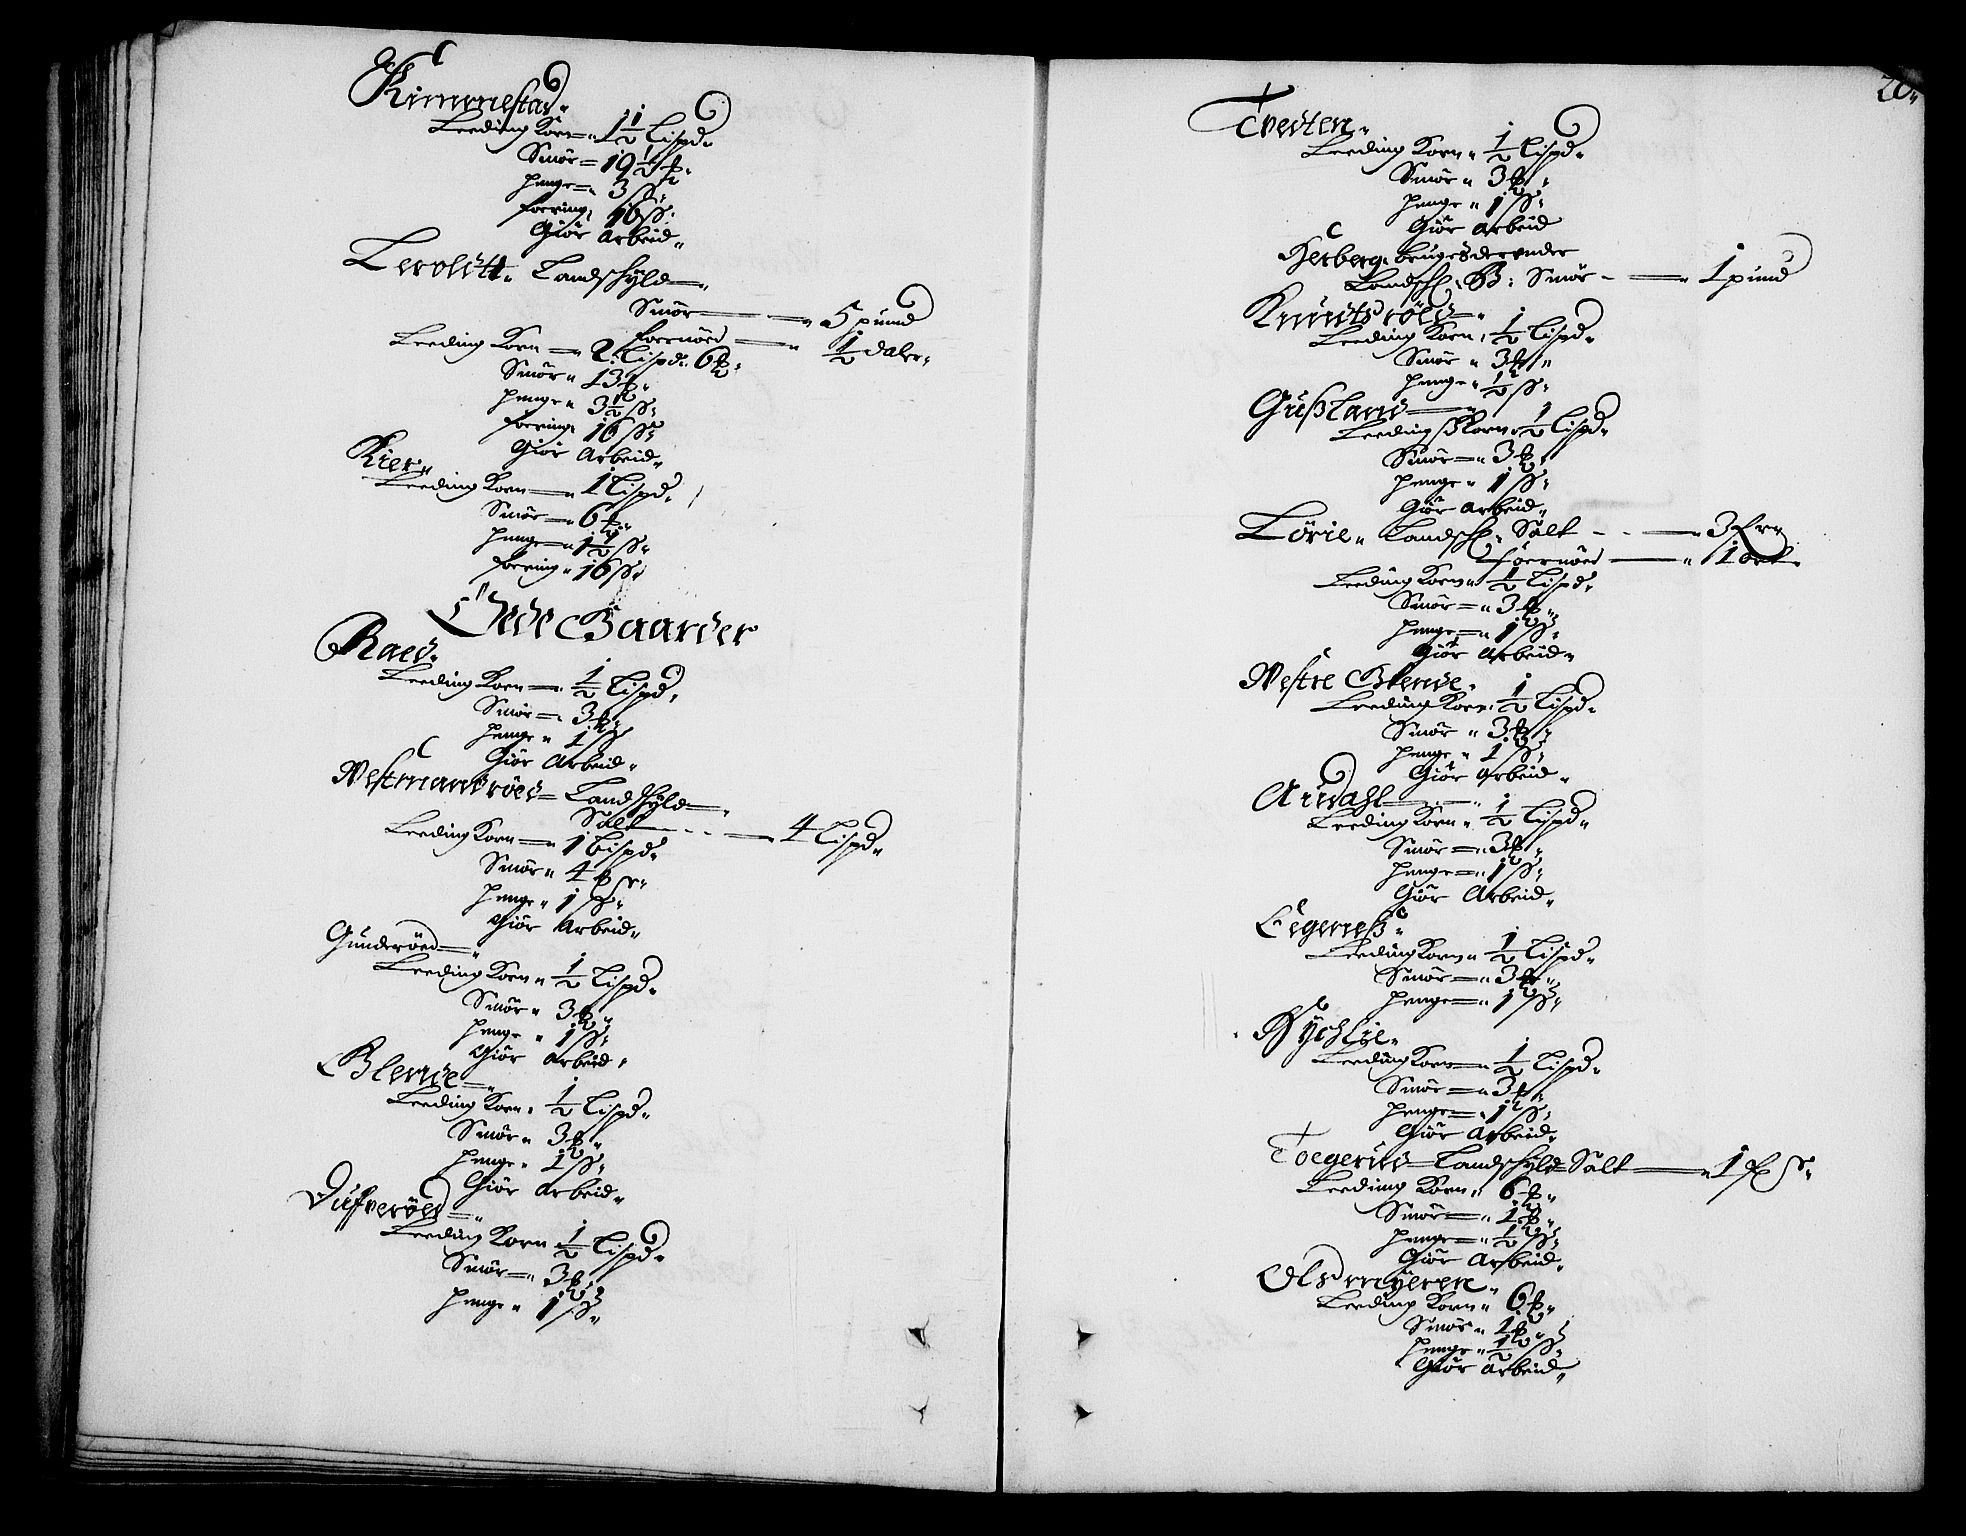 Kimmestad
Leeding Korn 1 1/2 Lispd
Smör 19 1/2 ℔
Penge 3 ss
foering 16 ss
Giör Arbeid
Landschÿld
Smör 5 pund
foernöed 1/2 daler
Leeding Korn 2 Lispd 6 ℔
Smör 13 ℔
Penge 3 1/2 ss
foering 16 ss
Giör Arbeid
Kier
Leeding Korn 1 Lispd
Smör 6 ℔
Penge 1 1/2 ss
foering 16 ss
Öede Gaarder
Raed
Leeding Korn 1/2 Lispd
Smör 3 ℔
Penge 1 ss
Giör Arbeid
Westmandröed Landschÿld
Salt 4 Lispd
Leeding Korn 1 Lispd
Smör 4 ℔
Penge 1 ss
Giör Arbeid
Gunderöed
Leeding Korn 1/2 Lispd
Smör 3 ℔
Penge 1 ss
Giör Arbeid
Glende
Leeding Korn 1/2 Lispd
Smör 3 ℔
Penge 1 ss
Giör Arbeid
Dufveröed
Leeding Korn 1/2 Lispd
Smör 3 ℔
Penge 1 ss
20
Tveiten
Leeding Korn 1/2 Lispd
Smör 3 ℔
Penge 1 ss
Giör Arbeid
Herberg brugesderunder
Landsch: B: Smör 1 pund
Knuutsröed
Leeding Korn 1/2 Lispd
Smör 3 ℔
Penge 1/2 ss
Gußland
Leeding Korn 1/2 Lispd
Smör 3 ℔
Penge 1 ss
Giör Arbeid
Lörie Landsch: Salt 3
foernöed 1 ort
Leeding Korn 1/2 Lispd
Smör 3 ℔
Penge 1 ss
Giör Arbeid
Westre Glende
Leeding Korn 1/2 Lispd
Smör 3 ℔
Penge 1 ss
Giör Arbeid
Audahl
Leeding Korn 1/2 Lispd
Smör 3 ℔
Penge 1 ss
Giör Arbeid
Eegeneß
Leeding Korn 1/2 Lispd
Smör 3 ℔
Penge 1 ss
Leeding Korn 1/2 Lispd
Smör 3 ℔
Penge 1 ss
Giör Arbeid
Toegerud Landschÿld Salt 1
Leeding Korn 6 ℔
Smör 1 ℔
Penge 1/2 ss
Giör Arbeid
Olsmÿeren
Leeding Korn 6 ℔
Smör 1 ℔
Penge 1/2 ss
Giör Arbeid